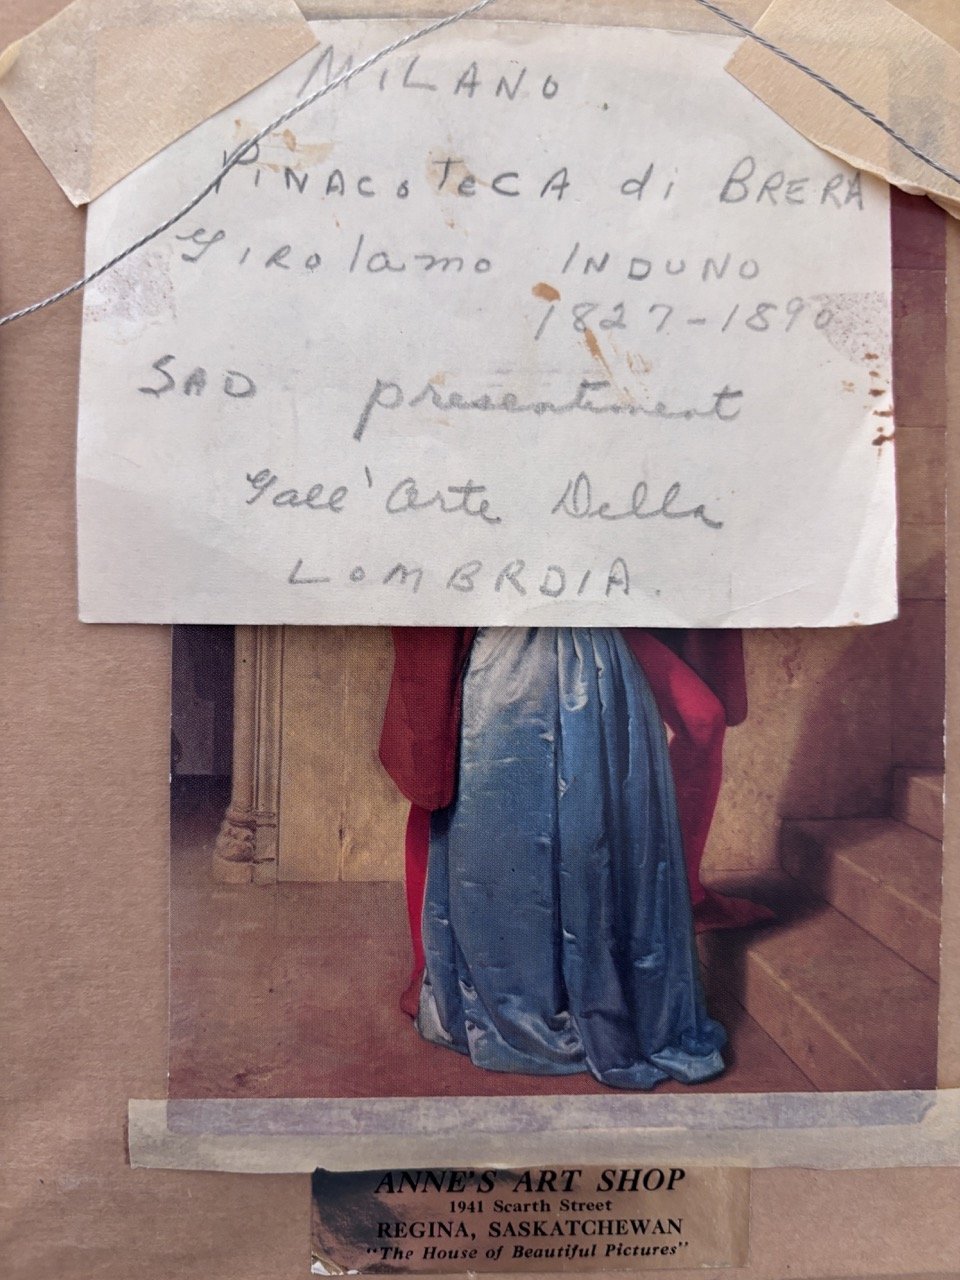 MILANO
PINACOTECA di BRERA
GIROlamo INDUNO
1827-1890
SAD presentiment
Gall' Arte Della
LOMBRDIA.
ANNE'S ART SHOP
1941 Scarth Street
REGINA, SASKATCHEWAN
"The House of Beautiful Pictures"